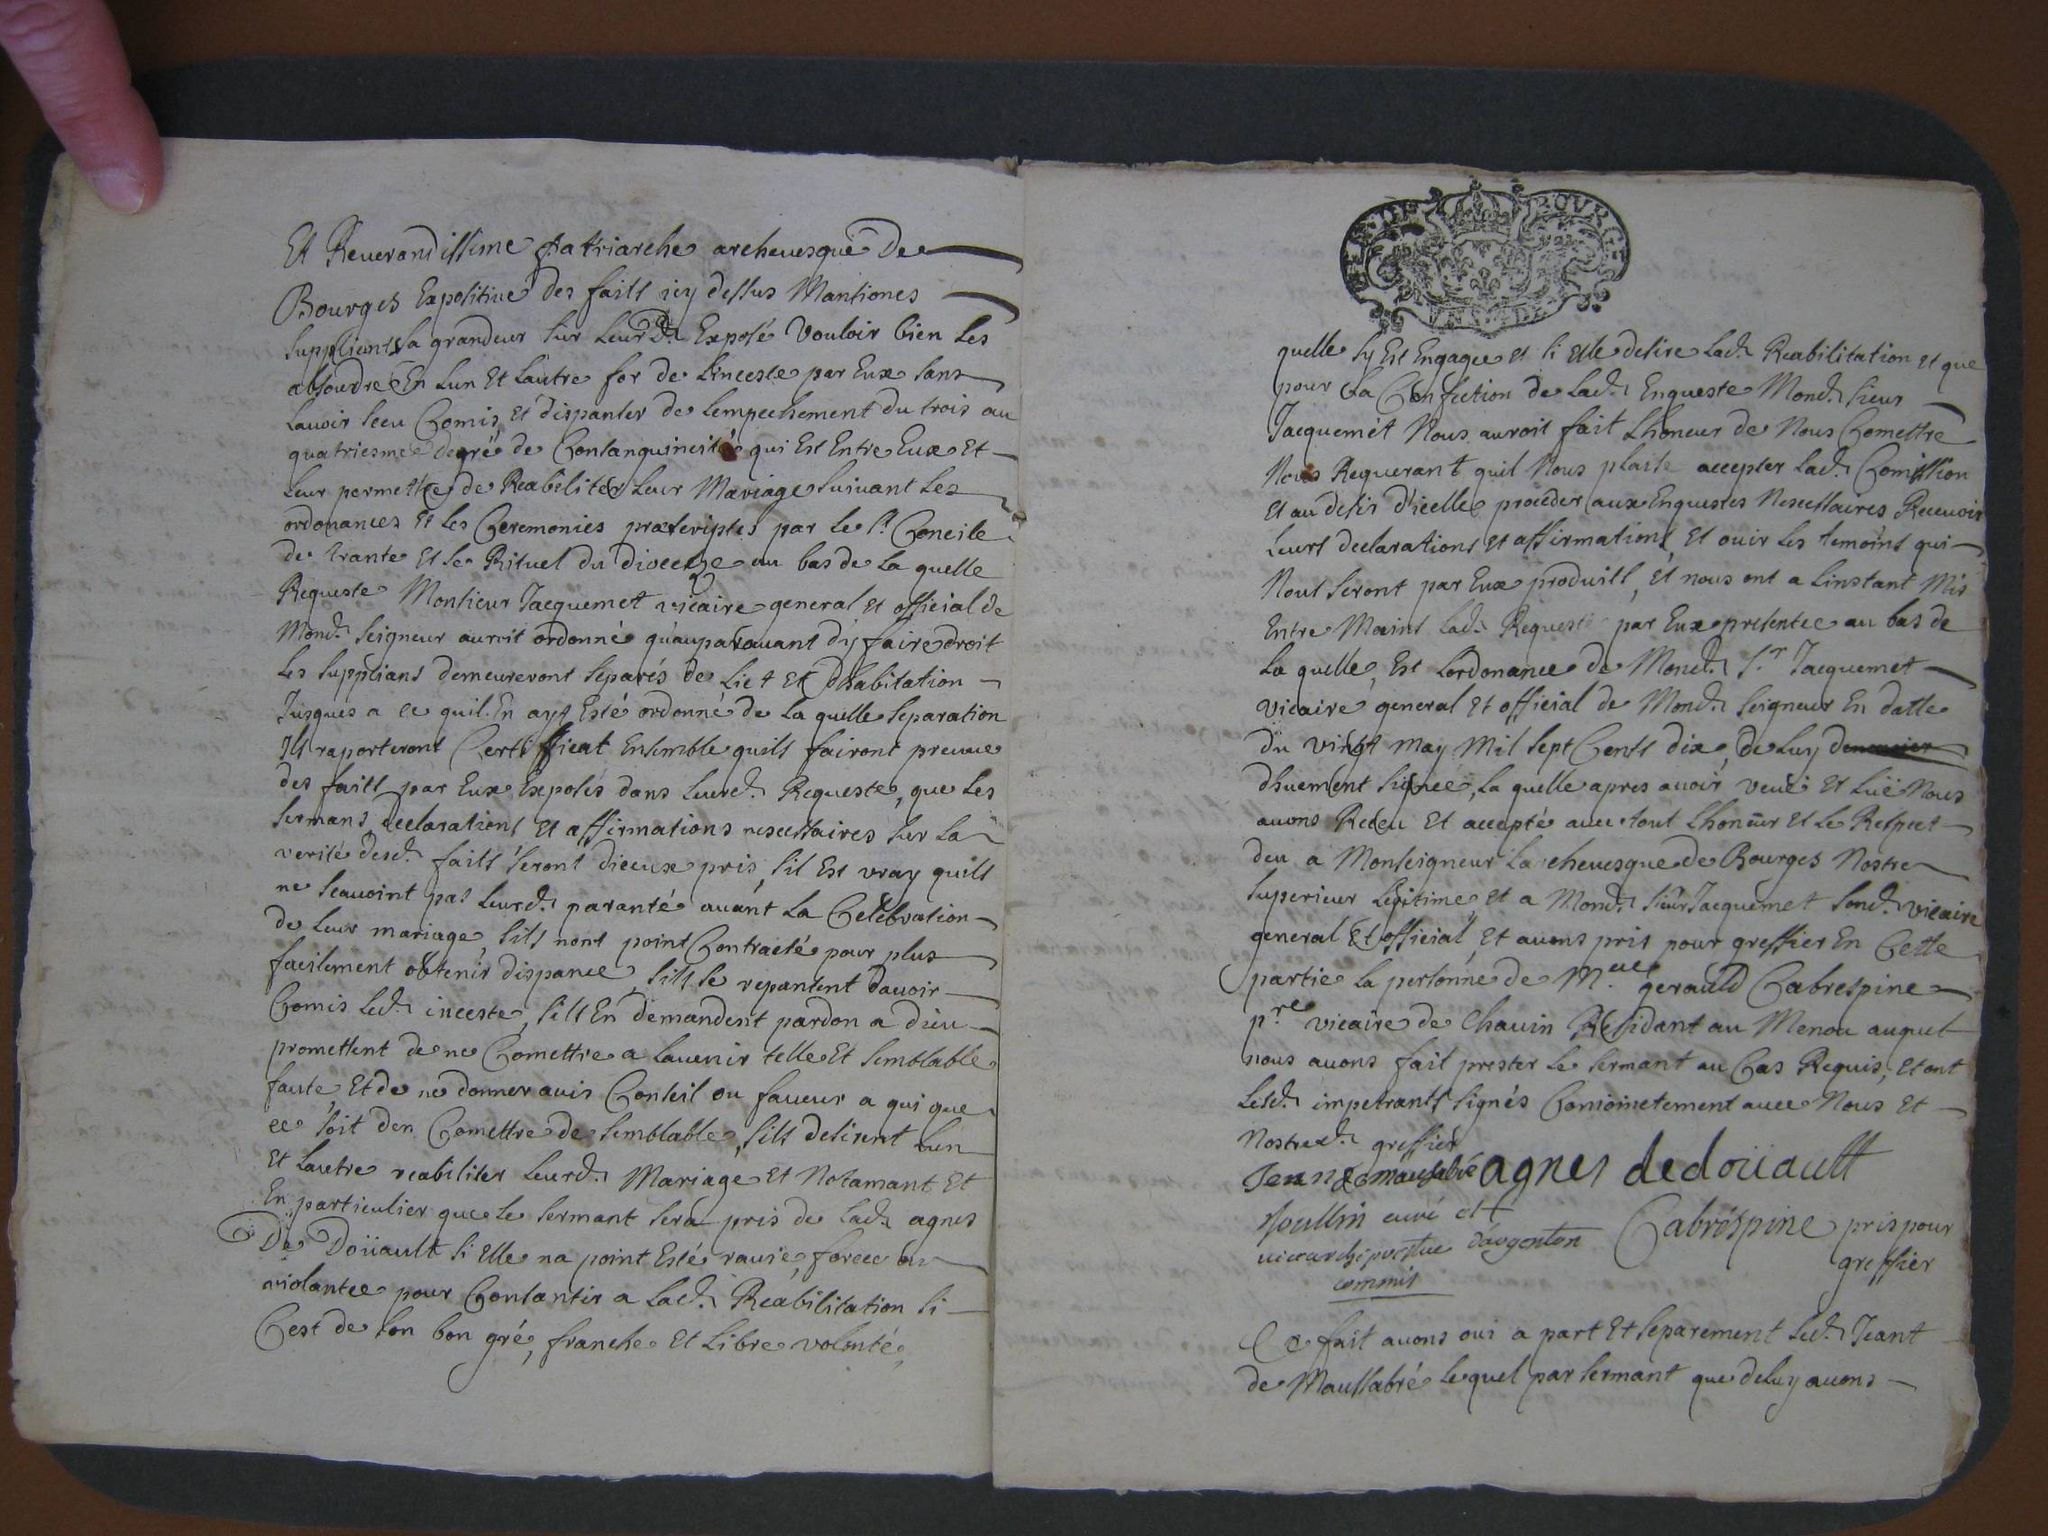 Et Reuerandissime patriarche archeuesque de
Bourges Expositiue des faits icy dessus Mantionés
suppliants sa grandeur sur leurd. Exposé vouloir bien les
absoudre En lun Et lautre for de linceste par Eux sans
lauoir sceu Comis, et dispanser de lempechement du trois au
quatriesme degré de Consanguinité qui Est Entre Eux Et
leur permettre de Reabiliter leur Mariage suiuant les
ordonances Et les Ceremonies prescriptes par le st. Concile
de trante Et le Rituel du diocese au bas de la quelle
Requeste Monsieur Jacquemet vicaire general et official de
Mond. seigneur auroit ordonné quauparauant dy faire droit
les supplians demeureront separés de Lict Et dhabitation
Jusques a ce quil En ayt Esté ordonné de la quelle separation
Ils raporteront Certifficat Ensemble quils fairont preuue
des faits par Eux Exposés dans leurd. Requeste, que les
sermans, declarations Et affirmations nescessaires sur la
verité desd. faits seront diceux pris, sil Est vray quils
ne scauoint pas leurd. paranté auant la Celebration
de leur mariage, sils nont point Contracté pour plus
facilement obtenir dispance, sils se repantent dauoir
Comis led. inceste, sils En demandent pardon a dieu
promettent de ne Comettre a lauenir telle Et semblable
faute, Et de ne donner auis Conseil ou faueur a qui que
ce soit den Comettre de semblable, sils desirent lun
Et lautre reabiliter leurd. Mariage Et Notamant Et
En particulier que le sermant sera pris de lad. agnes
De Doüault si Elle na point Esté rauie, forcee ou
violantee pour Consantir a lad. Reabilitation si
Cest de son bon gré, franche Et Libre volonté,
quelle sy Est Engagee et si Elle desire lad. Reabilitation et que
pour la Confection de lad. Enqueste Mond. sieur
Jacquemet Nous auroit fait Lhoneur de Nous Comettre
Nous Requerant quil Nous plaise accepter lad. Comission
Et au desir d'icelle proceder aux Enquestes Nescessaires Receuoir
leurs declarations et affirmations, Et ouir les temoins qui
Nous seront par Eux produits, Et nous ont a linstant Mis
Entre Mains lad. Requeste par Eux presentee au bas de
la quelle, Est lordonance de Mond. sr. Jacquemet
vicaire general Et official de Mond. seigneur En datte
du vingt may Mil sept Cents dix, de luy
dhuement signee, la quelle apres auoir veuë et luë Nous
auons Receu Et accepté auec tout Lhoneur Et le Respect
deu a Monseigneur larcheuesque de Bourges Nostre
superieur legitime et a Mond. sieur Jacquemet sond. vicaire
general Et official, Et auons pris pour greffier En Cette
partie la personne de Me. gerauld Cabrespine
pre. vicaire de Chauin Residant au Menou auquel
nous auons fait prester le sermant au Cas Requis, Et ont
lesd. impetrants signés Conioinctement auec Nous Et
Nostred. greffier
Jean de maussabré agnes dedoüault
curé et
vicearchiprestre dargenton
commis
Cabréspine pris pour
greffier
Ce fait auons oui a part Et separement led. Jeant
de Maussabré lequel par sermant que de luy auons